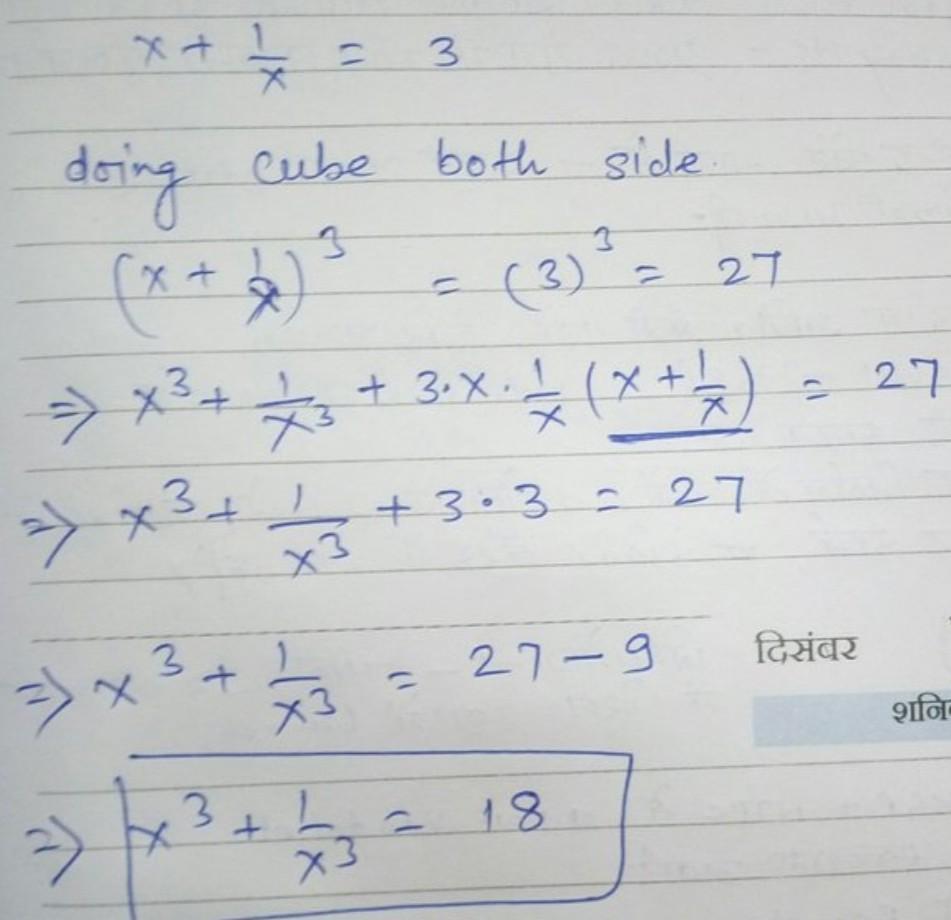 x + 1/x = 3
doing cube both side.
(x + 1/x)³ = (3)³ = 27
⇒ x³ + 1/x³ + 3·x·1/x (x + 1/x) = 27
⇒ x³ + 1/x³ + 3·3 = 27
⇒ x³ + 1/x³ = 27 - 9
दिसंबर
⇒ x³ + 1/x³ = 18